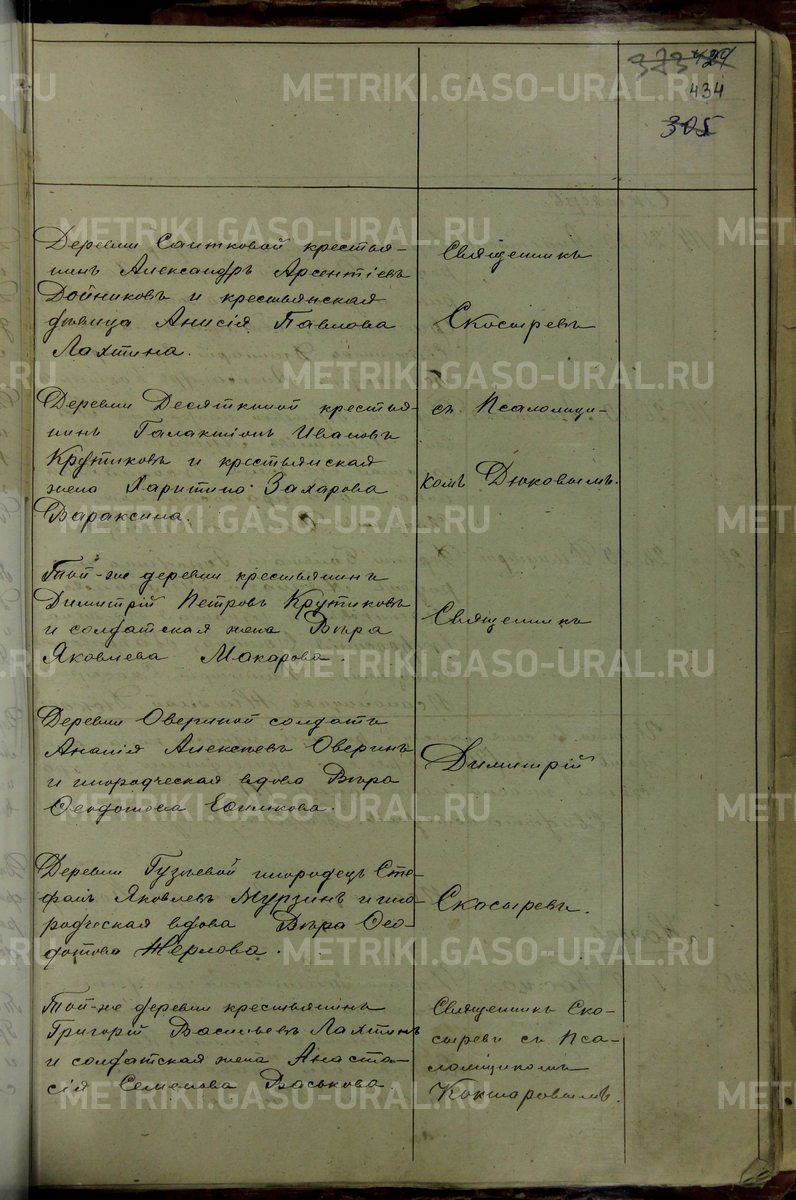 434
305
Деревни Саитковой крестья-
нинъ Александръ Арсентіевъ
Дойниковъ и крестьянская
дѣвица Анисія Павлова
Лахтина.
Священникъ
Скосыревъ
Деревни Десяткиной крестья-
нинъ Галактіонъ Ивановъ
Крутиковъ и крестьянская
жена Харитина Захарова
Вараксина.
съ Псаломщи-
комъ Дюковымъ.
Той-же деревни крестьянинъ
Димитрій Петровъ Крутиковъ
и солдатская жена Вѣра
Яковлева Макарова.
Священникъ
Деревни Овериной солдатъ
Ананія Алексѣевъ Оверинъ
и инородческая вдова Вѣра
Ѳеодотова
Димитрій
Деревни Гузѣевой инородецъ Сте-
фанъ Яковлевъ Мурзинъ и ино-
родческая вдова Вѣра Ѳео-
дотова Жерлова.
Скосыревъ.
Той-же деревни крестьянинъ
Григорій Васильевъ Лахтинъ
и солдатская жена Анаста-
сія Семенова Васькова.
Священникъ Ско-
сыревъ съ Пса-
ломщикомъ
Кокшаровымъ.
METRIKI.GASO-URAL.RU